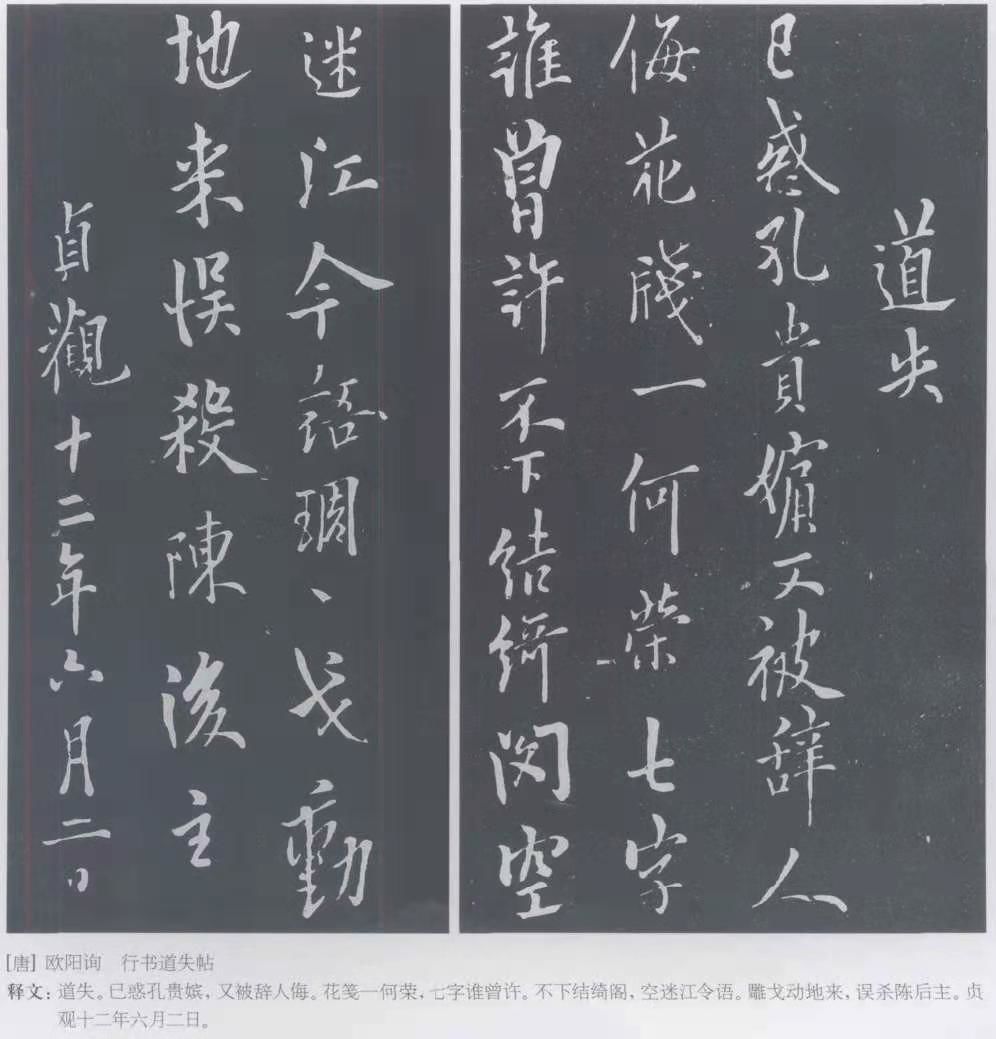 道失
已惑孔貴嬪又被辞人
侮花牋一何荣七字
誰曾許不下结綺阁空
迷江令語琱、戈動
地来悮殺陳後主
貞觀十二年六月二日
[唐] 欧阳询 行书道失帖
释文：道失。已惑孔贵嫔，又被辞人侮。花笺一何荣，七字谁曾许。不下结绮阁，空迷江令语。雕戈动地来，误杀陈后主。贞
观十二年六月二日。